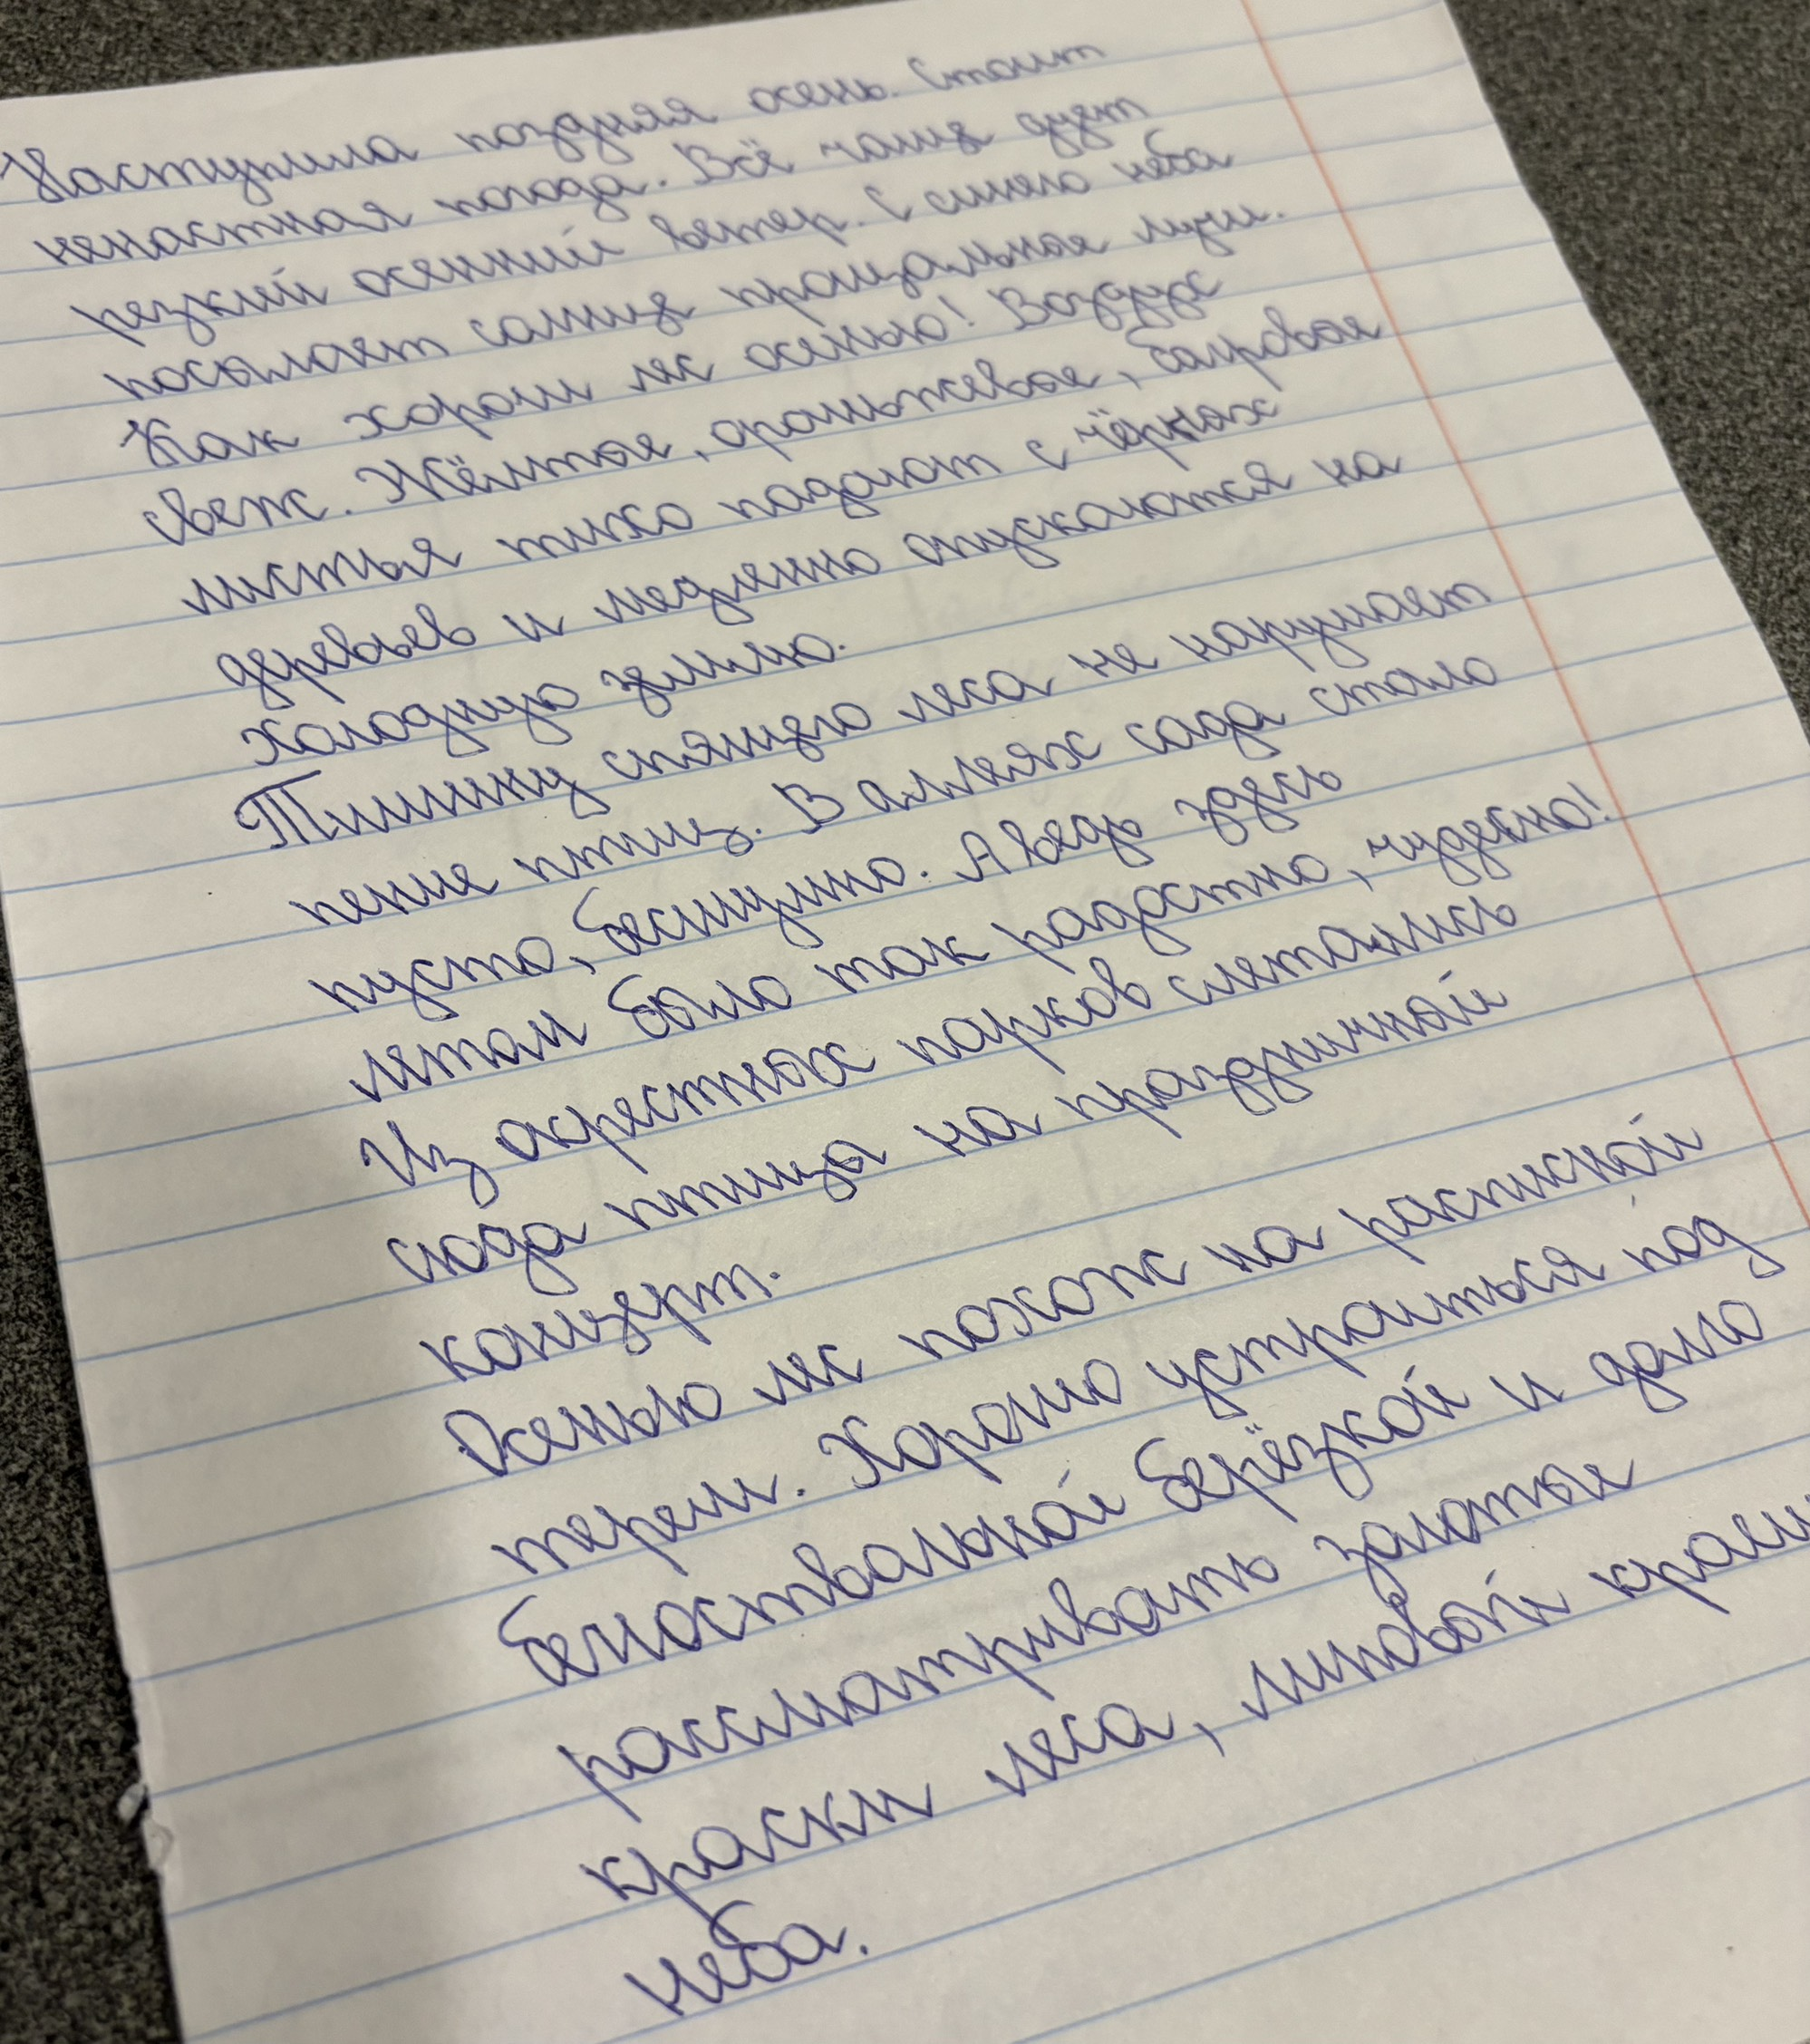 Наступила поздняя осень. Стоит
ненастная погода. Всё чаще дует
резкий осенний ветер. С синего неба
посылает солнце прощальные лучи.
Как хорош лес осенью! Воздух
свеж. Жёлтые, оранжевые, багровые
листья тихо падают с чёрных
деревьев и медленно опускаются на
холодную землю.
Тишину спящего леса не нарушает
пение птиц. В аллеях сада стало
пусто, бесшумно. А ведь здесь
летом было так радостно, чудесно!
Из окрестных парков слетались
сюда птицы на праздничный
концерт.
Осенью лес похож на расписной
терем. Хорошо устроиться под
белоствольной берёзкой и долго
рассматривать золотые
краски леса, линовый край
неба.